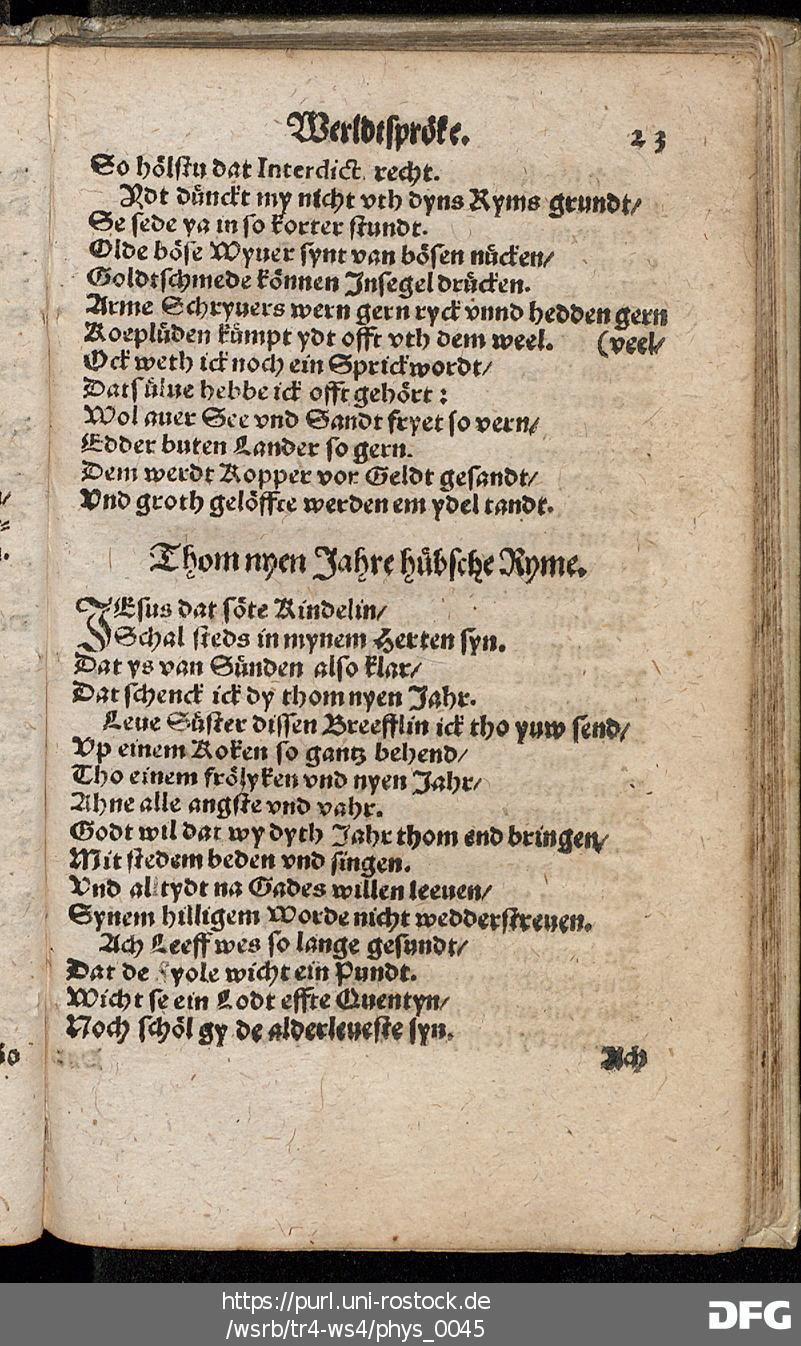 Werldtspröke. 23
So hölstu dat Interdict recht.
Ydt dünckt my nicht vth dyns Ryms grundt/
Se sede ya in so korter stundt.
Olde böse Wyuer synt van bösen nücken/
Goldtschmede können Insegel drücken.
Arme Schryuers wern gern ryck vnnd hedden gern
Koeplüden kümpt ydt offt vth dem weel. (veel/
Ock weth ick noch ein Sprickwordt/
Datsülue hebbe ick offt gehört:
Wol auer See vnd Sandt fryet so vern/
Edder buten Lander so gern.
Dem werdt Kopper vor Geldt gesandt/
Vnd groth gelöffte werden em ydel tandt.
Thom nyen Jahre hübsche Ryme.
JEsus dat söte Kindelin/
Schal steds in mynem Herten syn.
Dat ys van Sünden also klar/
Dat schenck ick dy thom nyen Jahr.
Leue Süster dissen Breefflin ick tho yuw send/
Vp einem Koken so gantz behend/
Tho einem frölyken vnd nyen Jahr/
Ahne alle angste vnd vahr.
Godt wil dat wy dyth Jahr thom end bringen/
Mit stedem beden vnd singen.
Vnd altydt na Gades willen leeuen/
Synem hilligem Worde nicht wedderstreuen.
Ach Leeff wes so lange gesundt/
Dat de yole wicht ein Pundt.
Wicht se ein Lodt effte Quentyn/
Noch schöl gy de alderleueste syn.
Ach
https://purl.uni-rostock.de
/wsrb/tr4-ws4/phys_0045
DFG